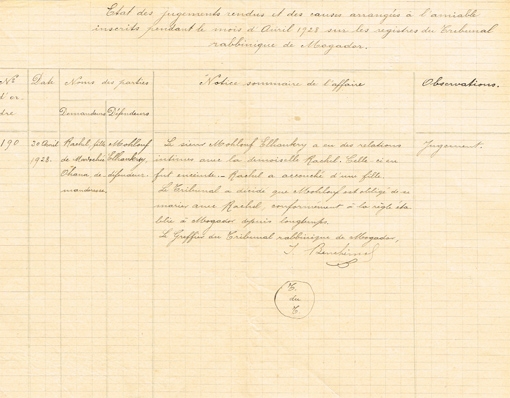 Etat des jugements rendus et des causes arrangées à l'amiable
inscrits pendant le mois d'Avril 1928 sur les registres du Tribunal
rabbinique de Mogador.
Nº d'ordre
Date
Noms des parties
Demandeurs
Défendeurs
Notice sommaire de l'affaire
Observations.
190
20 Avril
1928.
Rachel, fille
de Mardochée
Ohana de-
manderesse.
Mokhlouf
Elhankry
défendeur
Le sieur Mokhlouf Elhankry a eu des relations
intimes avec la demoiselle Rachel. Celle-ci en
fut enceinte. - Rachel a accouché d'une fille.
Le Tribunal a décidé que Mokhlouf est obligé de se
marier avec Rachel, conformément à la règle éta-
blie à Mogador depuis longtemps.
Le Greffier du Tribunal rabbinique de Mogador,
Jugement.